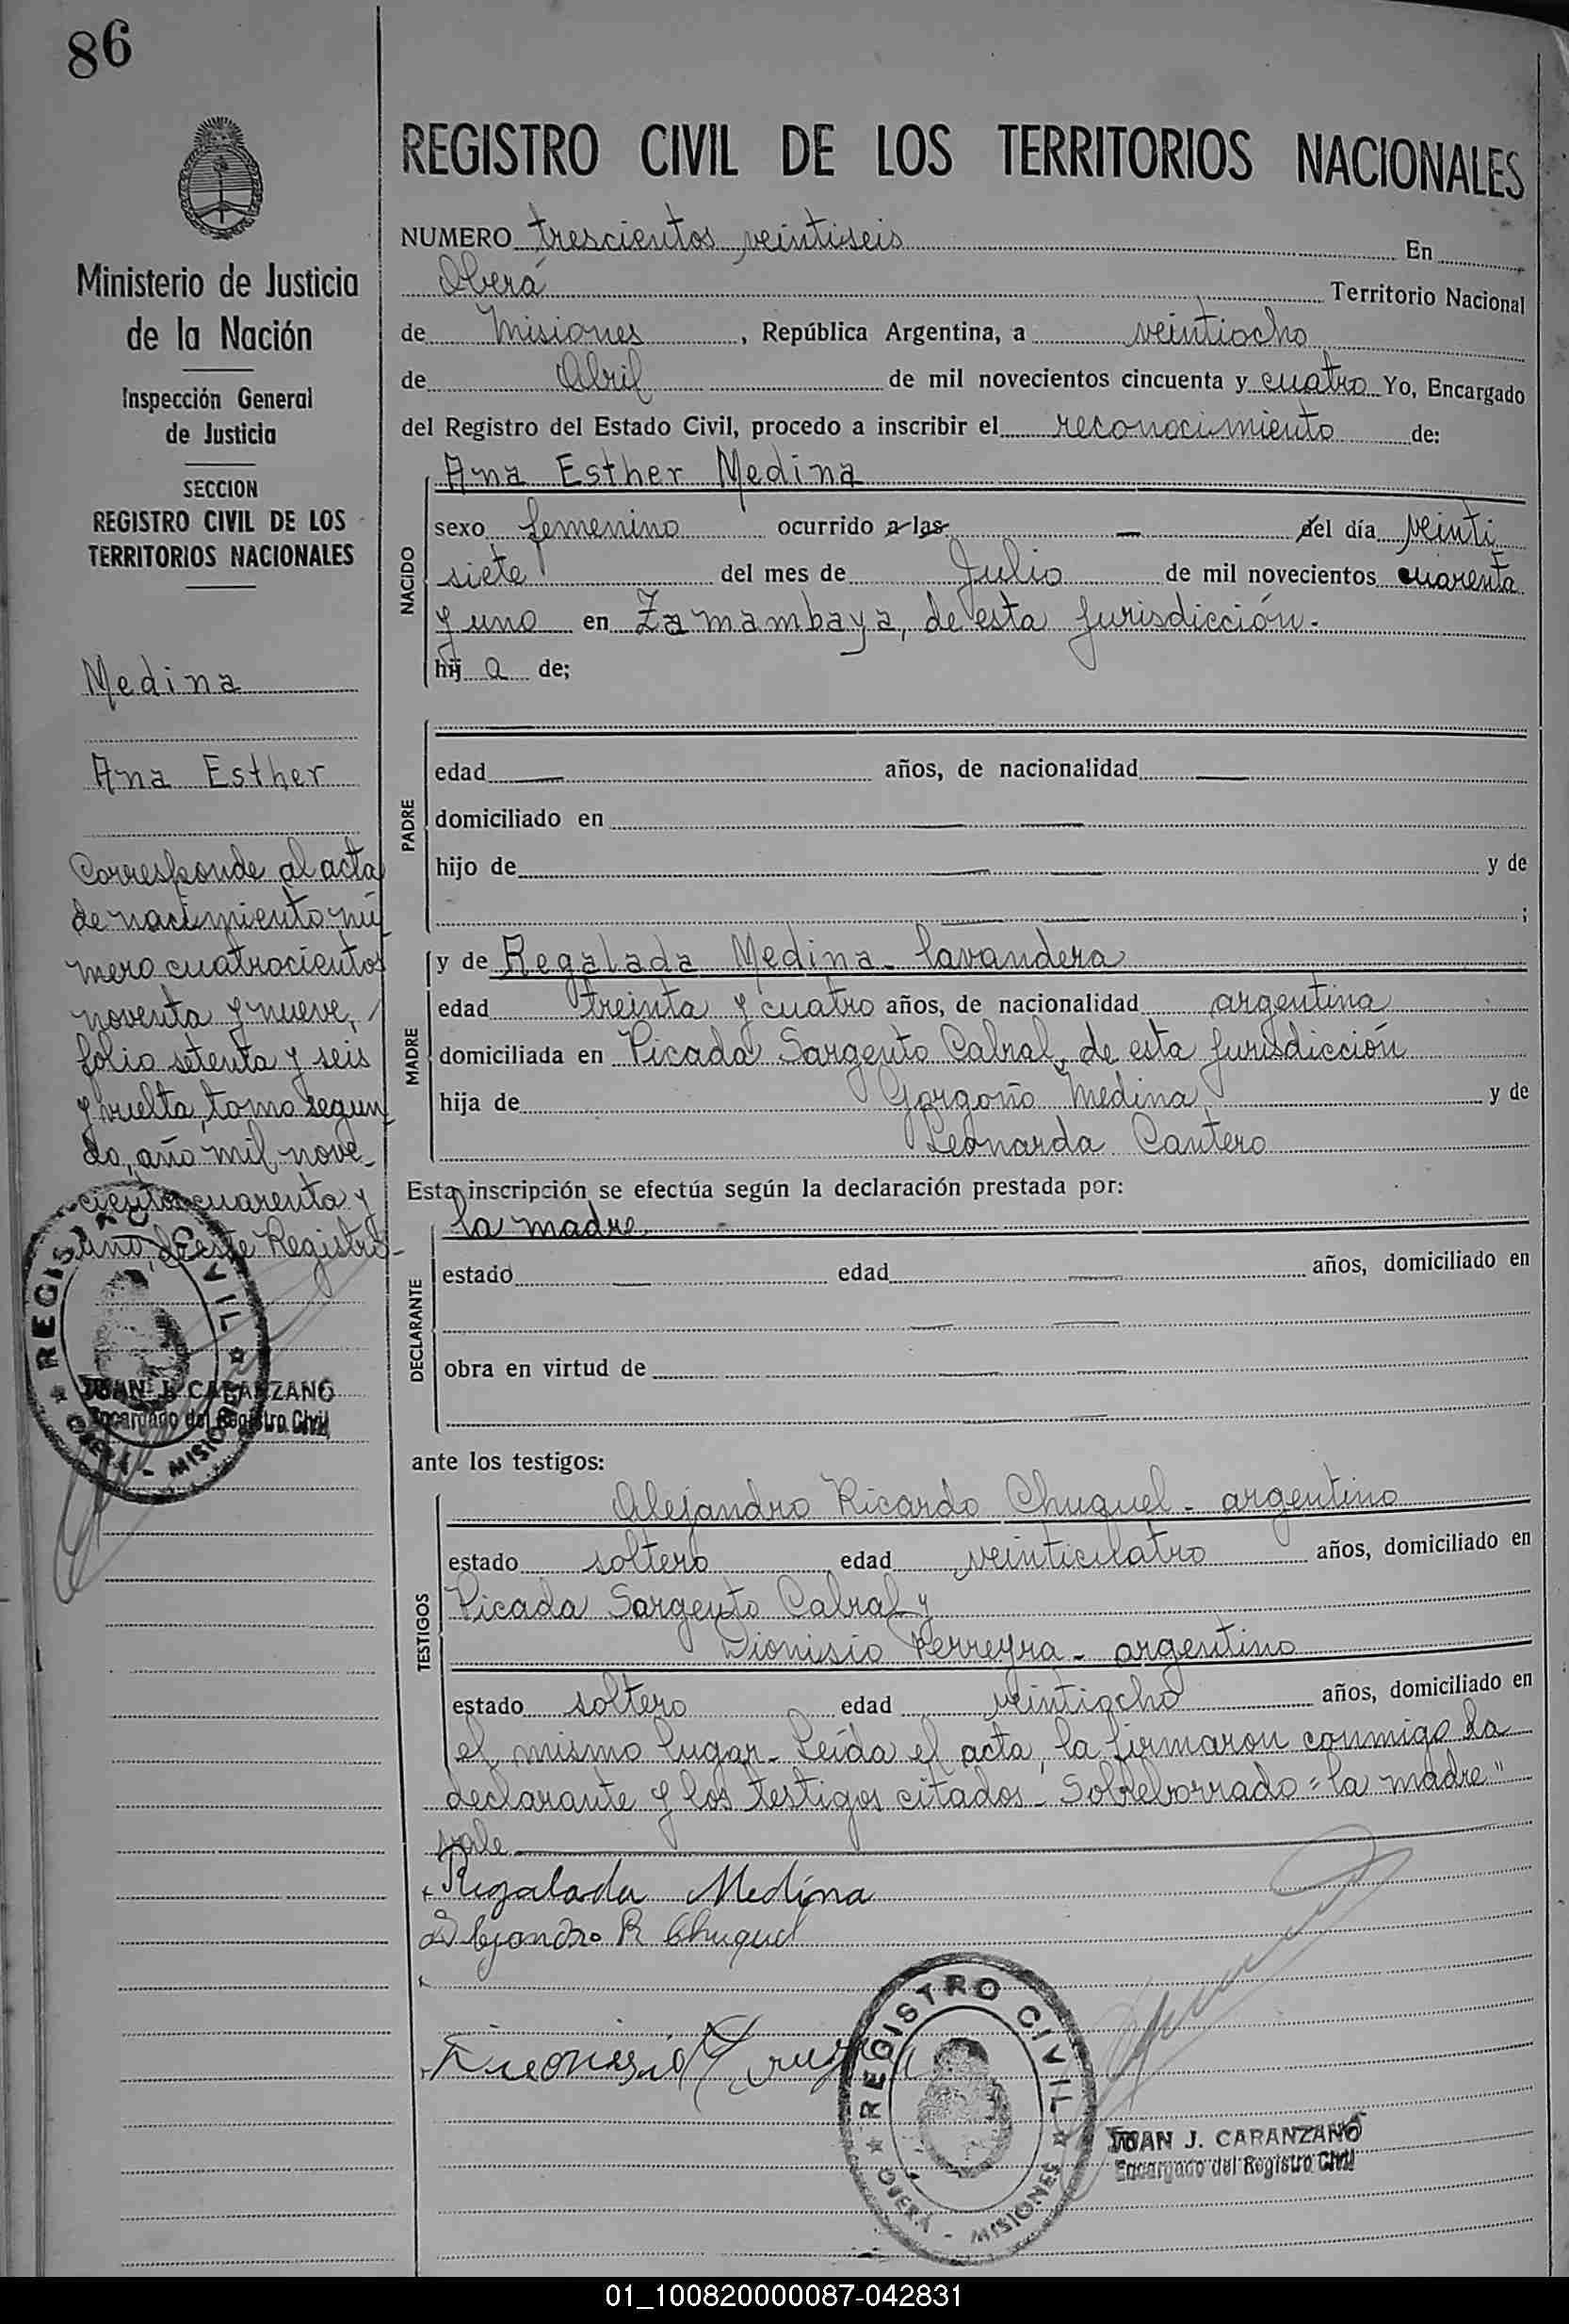 86
REGISTRO CIVIL DE LOS TERRITORIOS NACIONALES
Ministerio de Justicia
de la Nación
Inspección General
de Justicia
SECCION
REGISTRO CIVIL DE LOS
TERRITORIOS NACIONALES
Medina
Ana Esther
Corresponde al acta
de nacimiento nú
mero cuatrocientos
noventa y nueve,
folio setenta y seis
y vuelta, tomo segun
do, año mil nove-
cientos cuarenta y
uno, de este Registro-
REGISTRO CIVIL
OBERA - MISIONES
JUAN J. CARANZANO
Encargado del Registro Civil
NUMERO trescientos veintiseis En
Oberá Territorio Nacional
de Misiones, República Argentina, a veintiocho
de Abril de mil novecientos cincuenta y cuatro Yo, Encargado
del Registro del Estado Civil, procedo a inscribir el reconocimiento de:
NACIDO
Ana Esther Medina
sexo femenino ocurrido a las — del día veinti
siete del mes de Julio de mil novecientos cuarenta
y uno en Zamambaya, de esta jurisdicción.-
hij a de;
PADRE
edad — años, de nacionalidad —
domiciliado en — —
hijo de — — y de
— — ;
MADRE
y de Regalada Medina - lavandera
edad treinta y cuatro años, de nacionalidad argentina
domiciliada en Picada Sargento Cabral, de esta jurisdicción
hija de Gorgoño Medina y de
Leonarda Cantero
Esta inscripción se efectúa según la declaración prestada por:
DECLARANTE
la madre
estado — edad — años, domiciliado en
— —
obra en virtud de — —
— —
ante los testigos:
TESTIGOS
Alejandro Ricardo Chuquel - argentino
estado soltero edad veinticuatro años, domiciliado en
Picada Sargento Cabral y
Dionisio Ferreyra - argentino
estado soltero edad veintiocho años, domiciliado en
el mismo lugar - Leída el acta, la firmaron conmigo la
declarante y los testigos citados - Sobreborrado = la madre"
vale
Regalada Medina
Alejandro R Chuquel
REGISTRO CIVIL
OBERA - MISIONES
JUAN J. CARANZANO
Encargado del Registro Civil
01_100820000087-042831